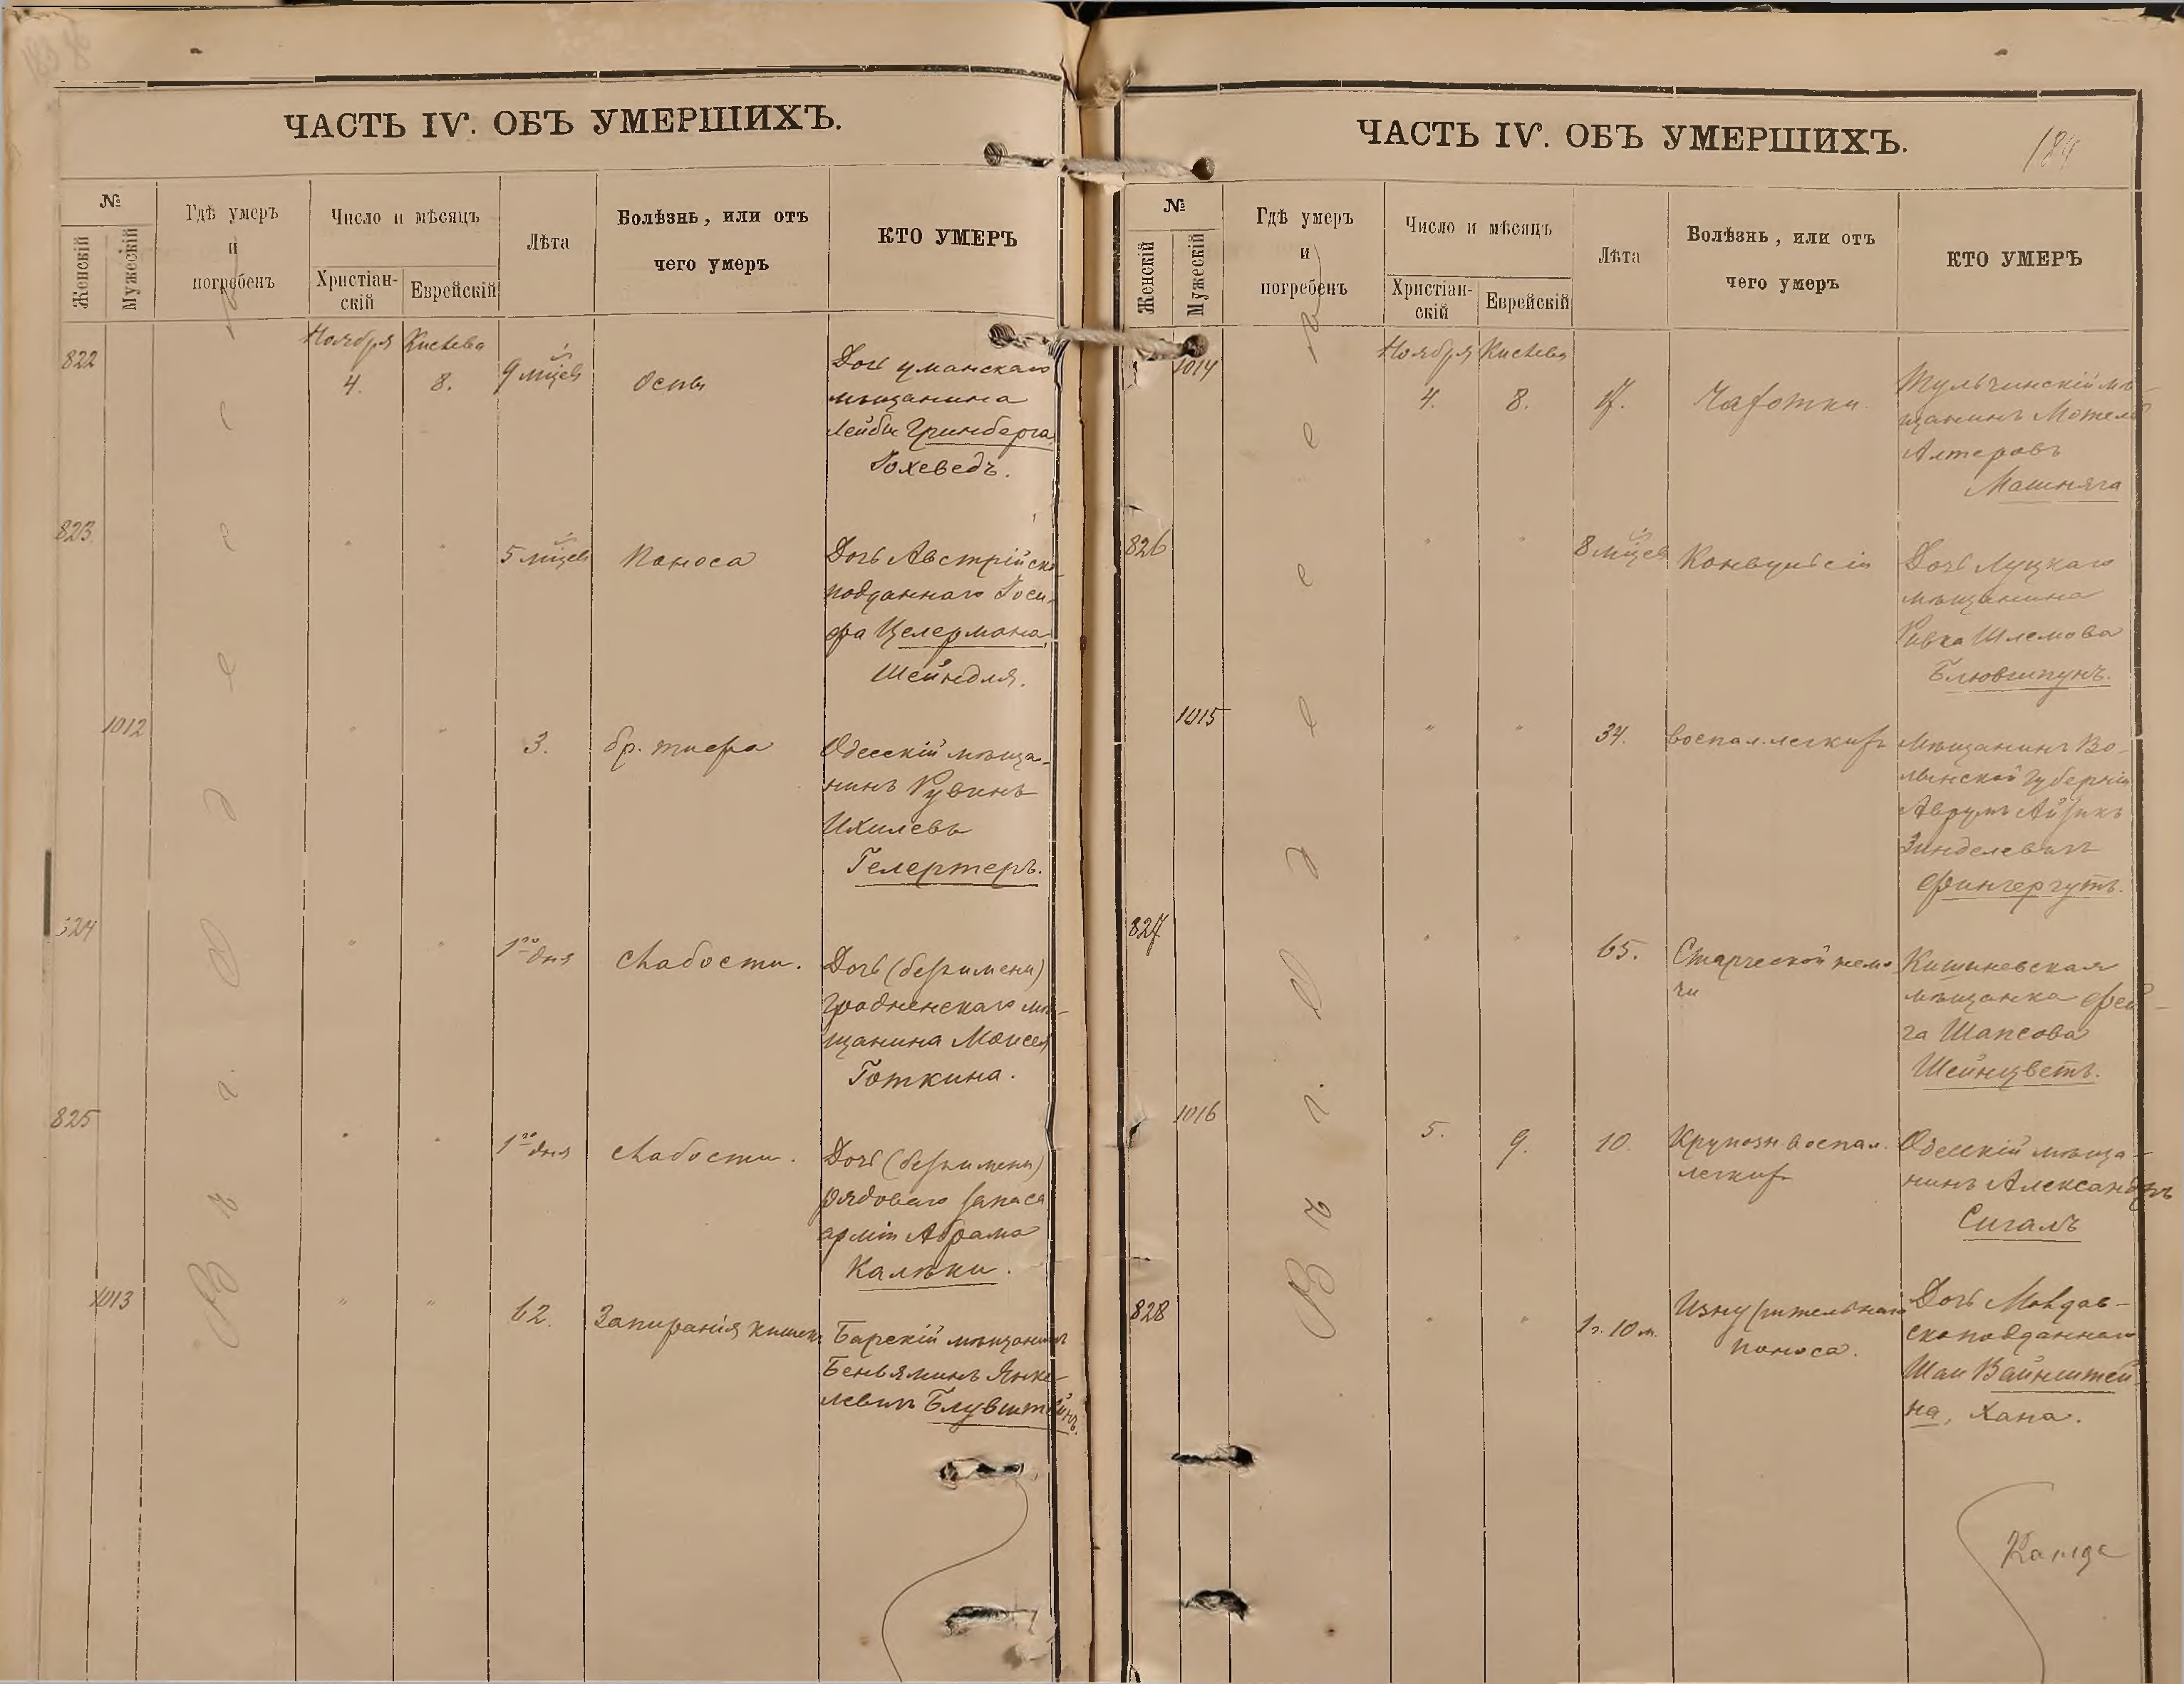 ЧАСТЬ IV. ОБЪ УМЕРШИХЪ.
№
Женскій
Мужескій
Гдѣ умеръ
и
погребенъ
Число и мѣсяцъ
Христіан-
скій
Еврейскій
Лѣта
Болѣзнь, или отъ
чего умеръ
КТО УМЕРЪ
Въ г. Одессѣ
Ноября Кислева
822
4.
8.
9 мѣсяц
Оспы
Дочь уманскаго
мѣщанина
Лейбы Гринберга,
Іохеведъ.
823
"
"
5 мѣсяц
Поноса
Дочь Австрійско-
подданнаго Іоси-
фа Целермана,
Шейндля.
1012
"
"
3.
бр. тифа
Одесскій мѣща-
нинъ Рувинъ
Ихилевъ
Гелертеръ.
824
"
"
1го дня
Слабости.
Дочь (безъ имени)
Гродненскаго мѣ-
щанина Моисея
Готкина.
825
"
"
1го дня
Слабости.
Дочь (безъ имени)
рядоваго запаса
арміи Абрама
Калѣки.
1013
"
"
62.
Запиранія кишекъ
Барскій мѣщанинъ
Беньяминъ Янке-
левичъ Блувштейнъ.
ЧАСТЬ IV. ОБЪ УМЕРШИХЪ.
184
№
Женскій
Мужескій
Гдѣ умеръ
и
погребенъ
Число и мѣсяцъ
Христіан-
скій
Еврейскій
Лѣта
Болѣзнь, или отъ
чего умеръ
КТО УМЕРЪ
Въ г. Одессѣ
Ноября Кислева
1014
4.
8.
17.
Чахотки
Тульчинскій мѣ-
щанинъ Мотель
Алтеровъ
Машняга
826
"
"
8 мѣсяц
Конвульсіи
Дочь Луцкаго
мѣщанина
Ривка Шлемова
Блювштунъ.
1015
"
"
34.
воспал. легкихъ
Мѣщанинъ Во-
лынской губерніи
Аврумъ Айзикъ
Зинделевичъ
Фингергутъ.
827
"
"
65.
Старческой немо
чи
Кишиневская
мѣщанка Фей-
га Шапсова
Шейнцветъ.
1016
5.
9.
10.
Крупозн. воспал.
легкихъ
Одесскій мѣща-
нинъ Александръ
Сигалъ
828
"
"
1 г. 10 м.
Изнурительнаго
поноса.
Дочь Молдав-
скоподданнаго
Шаи Вайнштей-
на, Хана.